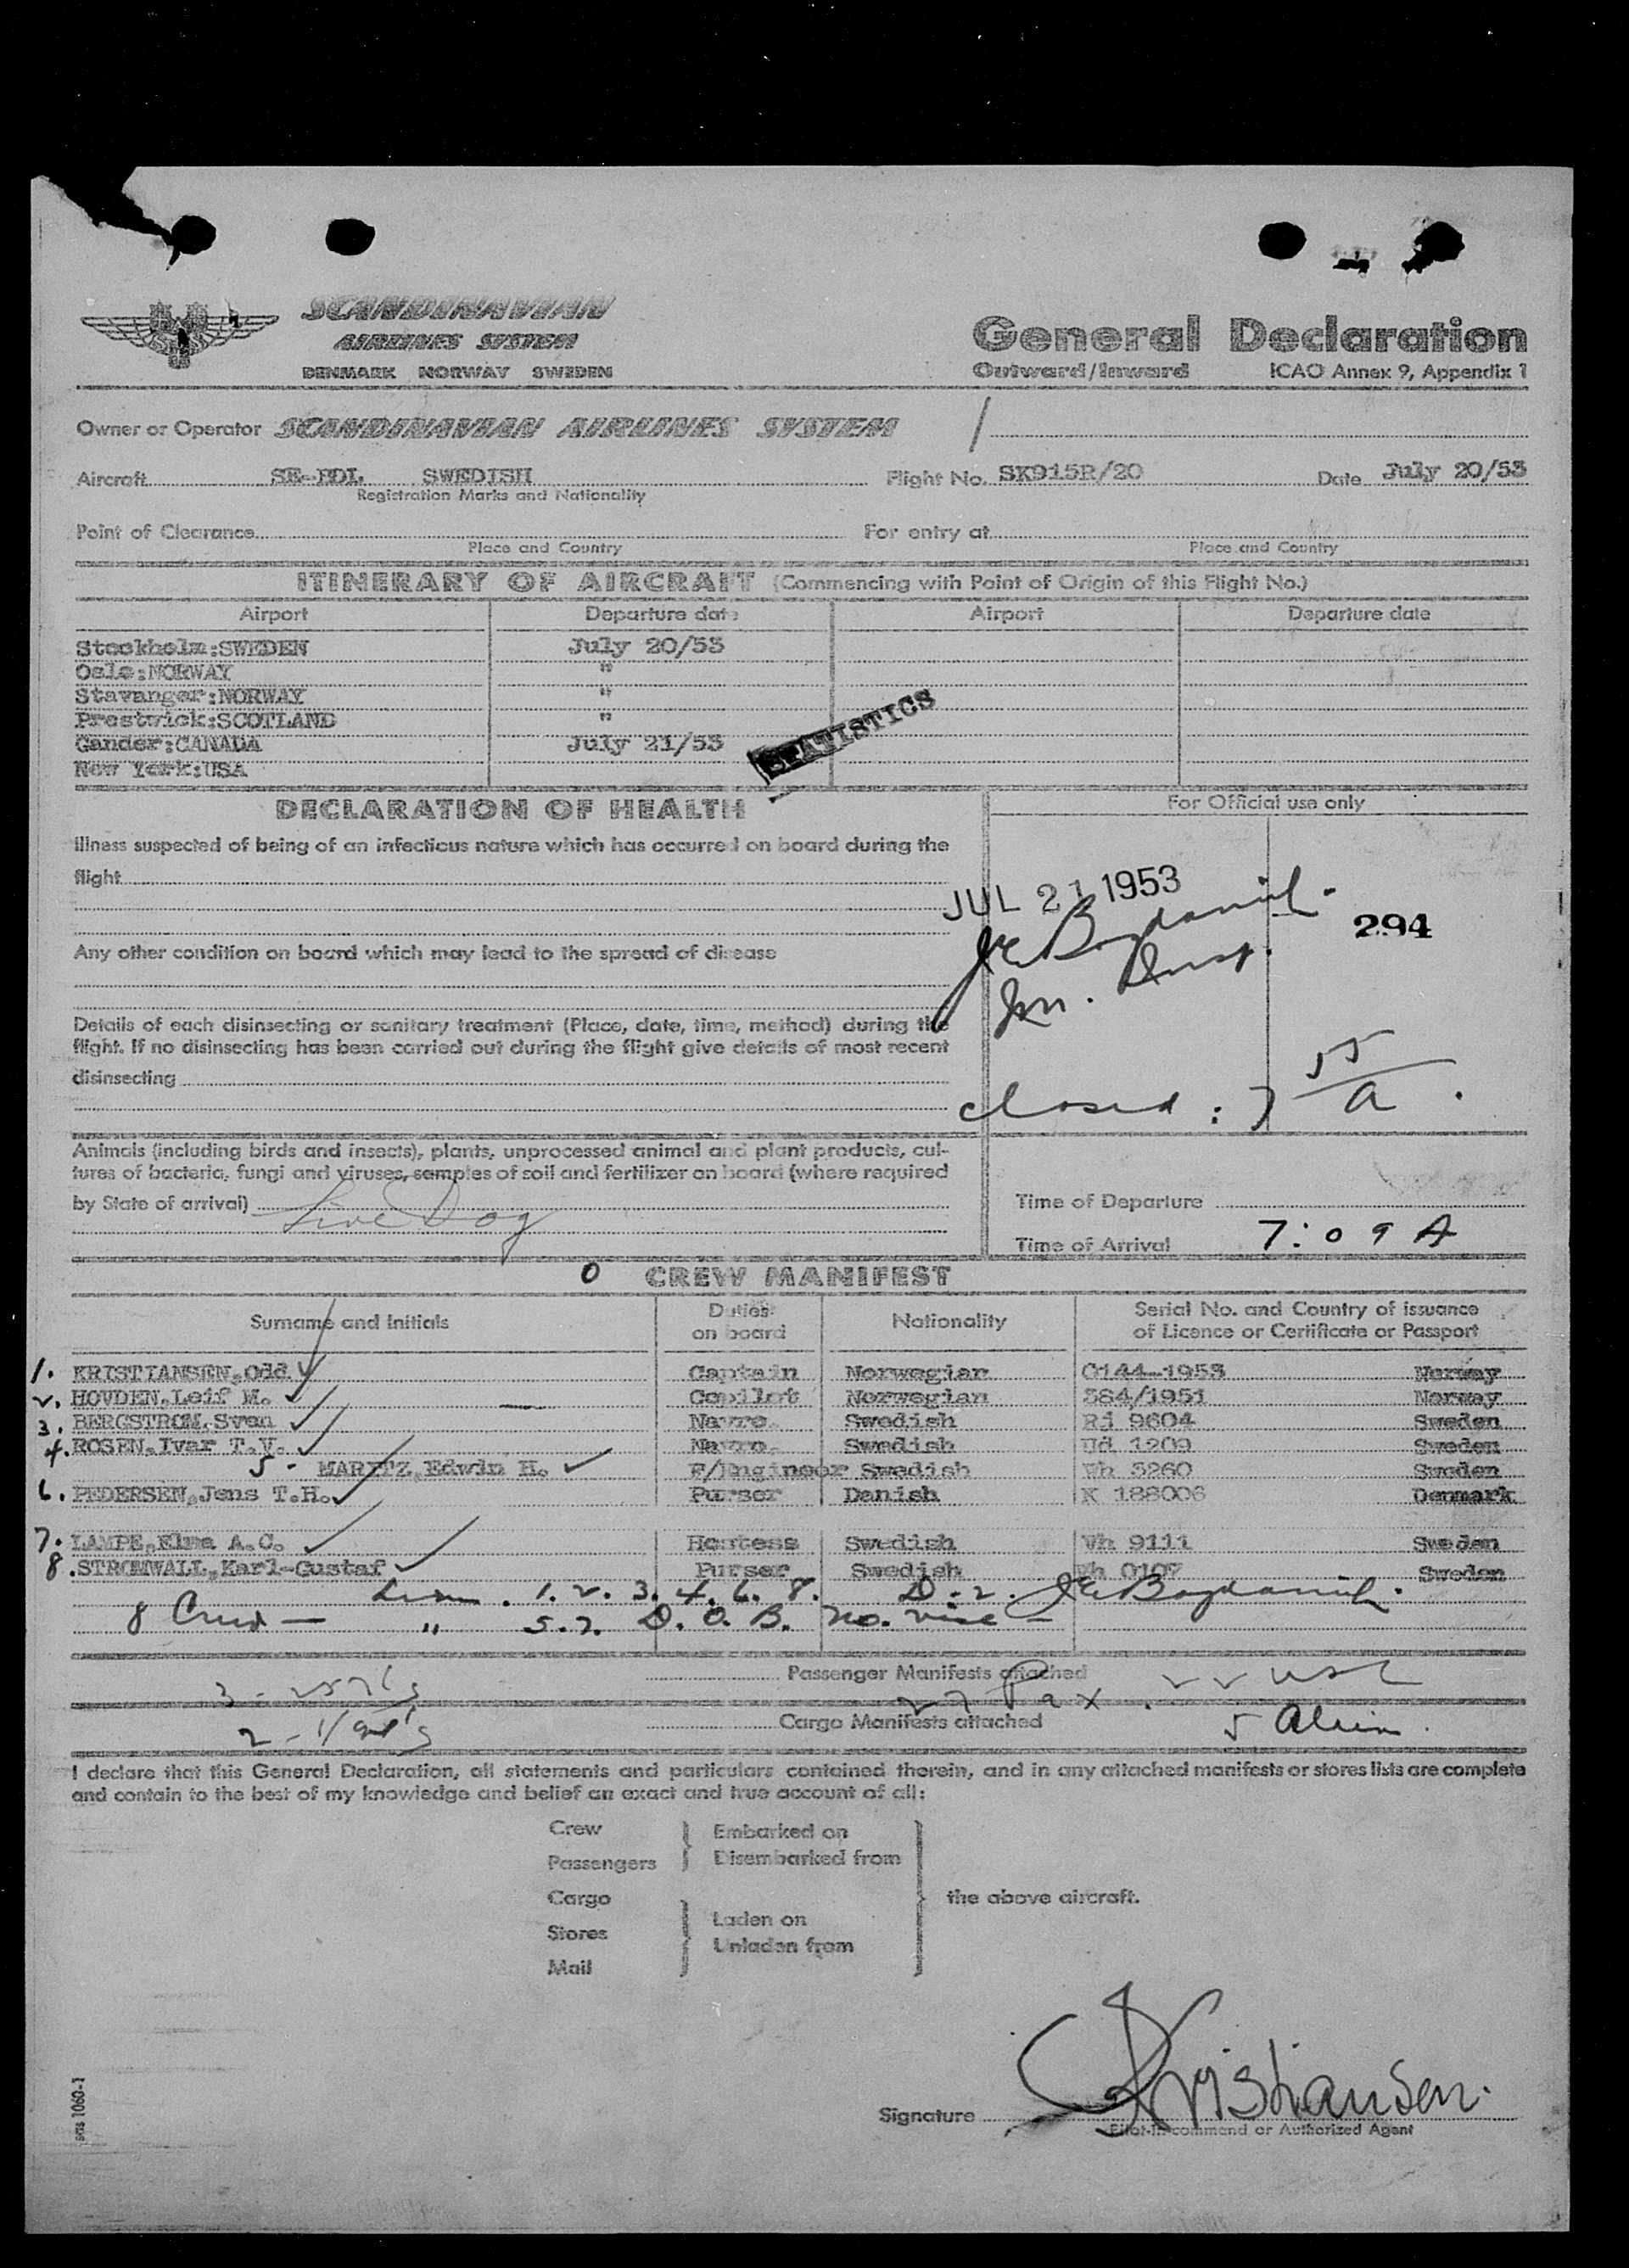 SCANDINAVIAN
AIRLINES SYSTEM
DENMARK NORWAY SWEDEN
General Declaration
Outward/Inward ICAO Annex 9, Appendix 1
Owner or Operator SCANDINAVIAN AIRLINES SYSTEM
Aircraft SE-BDL SWEDISH Flight No. SK915R/20 Date July 20/53
Registration Marks and Nationality
Point of Clearance For entry at
Place and Country Place and Country
ITINERARY OF AIRCRAFT (Commencing with Point of Origin of this Flight No.)
Airport Departure date Airport Departure date
Stockholm:SWEDEN July 20/53
Oslo:NORWAY "
Stavanger:NORWAY "
Prestwick:SCOTLAND "
Gander:CANADA July 21/53
New York:USA
STATISTICS
DECLARATION OF HEALTH
For Official use only
Illness suspected of being of an infectious nature which has occurred on board during the
flight
JUL 21 1953
294
Any other condition on board which may lead to the spread of disease
Details of each disinsecting or sanitary treatment (Place, date, time, method) during the
flight. If no disinsecting has been carried out during the flight give details of most recent
disinsecting
closed: 7 55/A.
Animals (including birds and insects), plants, unprocessed animal and plant products, cul-
tures of bacteria, fungi and viruses, samples of soil and fertilizer on board (where required
by State of arrival) Live Dog
Time of Departure
Time of Arrival 7:09 A
0 CREW MANIFEST
Surname and Initials Duties on board Nationality Serial No. and Country of issuance of Licence or Certificate or Passport
1. KRISTIANSEN,Odd Captain Norwegian 0144-1953 Norway
2. HOVDEN,Leif M. Copilot Norwegian 384/1951 Norway
3. BERGSTROM,Sven Navro. Swedish Rj 9604 Sweden
4. ROSEN,Ivar T.V. Navro. Swedish Ud 1209 Sweden
5- MARITZ,Edwin H. F/Engineer Swedish Wh 5260 Sweden
6. PEDERSEN,Jens T.H. Purser Danish K 188006 Denmark
7. LAMPE,Elma A.C. Hostess Swedish Vh 9111 Sweden
8. STROMWALL,Karl-Gustaf Purser Swedish Wh 0107 Sweden
1. 2. 3. 4. 6. 8. D-2.
8 Crew — " 5. 7. D. O. B. no. visa —
Passenger Manifests attached
27 Pax. 22 USC
Cargo Manifests attached
5 Alien.
I declare that this General Declaration, all statements and particulars contained therein, and in any attached manifests or stores lists are complete
and contain to the best of my knowledge and belief an exact and true account of all:
Crew Embarked on
Passengers Disembarked from
Cargo the above aircraft.
Stores Laden on
Mail Unladen from
Signature Kristiansen.
Pilot-in-command or Authorized Agent
sas 1060-1